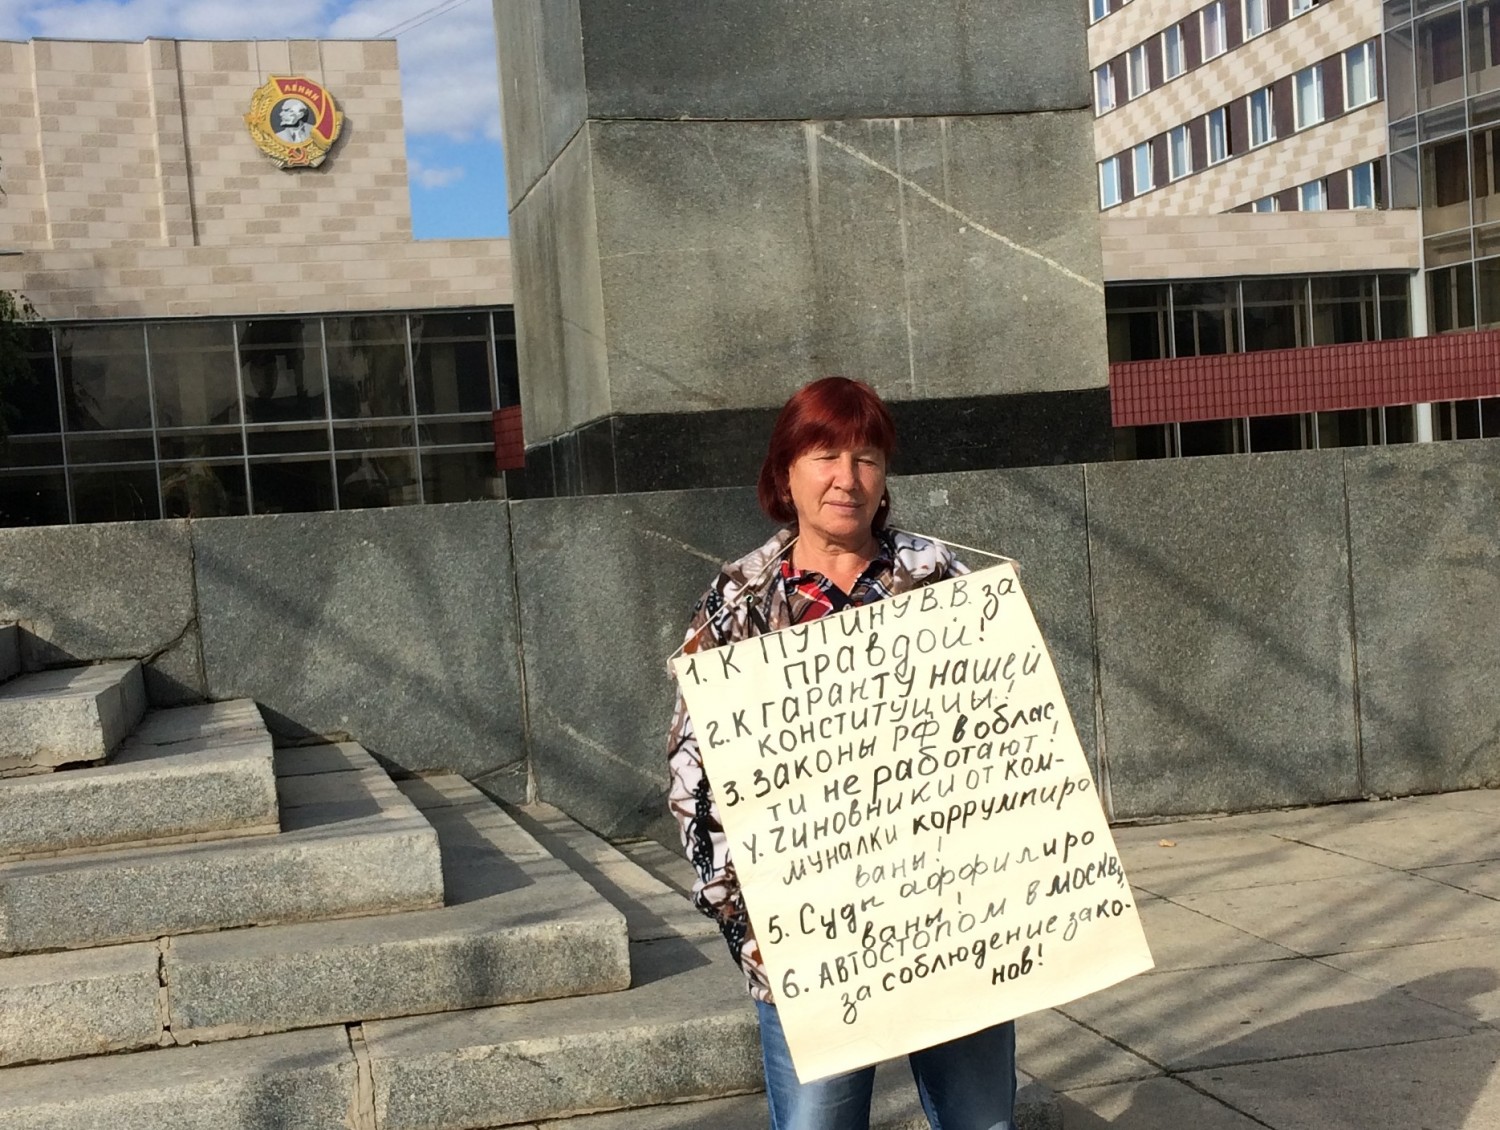 ЛЕНИН
1. К ПУТИНУ В. В. за
правдой!
2. К гаранту нашей
конституции!
3. Законы РФ в облас
ти не работают!
4. Чиновники от ком-
муналки коррумпиро
ваны!
5. Суды аффилиро
ваны!
6. АВТОСТОПОМ в МОСКВУ,
за соблюдение зако-
нов!